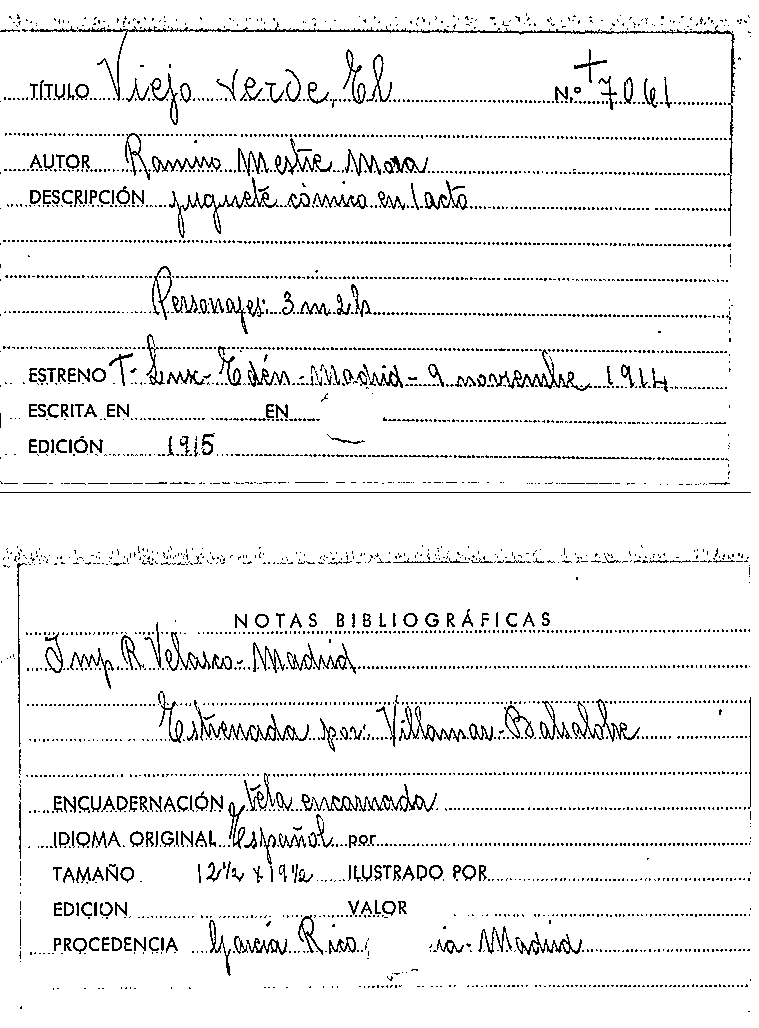 TÍTULO Viejo verde, El N.º 7061
AUTOR Ramiro Mestre Mora
DESCRIPCIÓN juguete cómico en 1 acto
Personajes: 3 m 2 h
ESTRENO T- Lux-Edén-Madrid-9 noviembre 1914
ESCRITA EN EN
EDICIÓN 1915
NOTAS BIBLIOGRÁFICAS
Imp. R Velasco-Madrid
Estrenada por: Villamar-Balsalobre
ENCUADERNACIÓN tela encarnada
IDIOMA ORIGINAL Español por
TAMAÑO 12½ x 19½ ILUSTRADO POR
EDICION VALOR
PROCEDENCIA García Rico Madrid